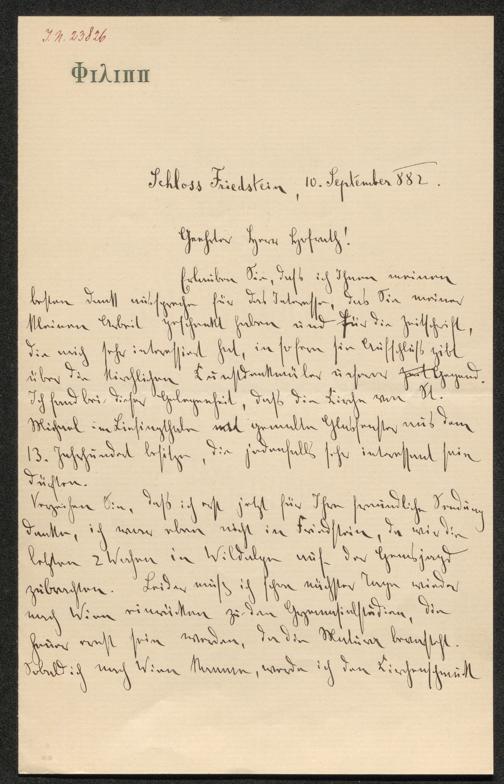 I.N. 23826
Φιλιππ
Schloss Friedstein, 10. September 882.
Geehrter Herr Hofrath!
Erlauben Sie, daß ich Ihnen meinen
besten Dank ausspreche für das Interesse, das Sie meiner
kleinen Arbeit geschenkt haben und für die Zeitschrift,
die mich sehr interessiert hat, in sofern sie Aufschluß gibt
über die kirchlichen Kunstdenkmäler unserer Gegend.
Ich fand bei dieser Gelegenheit, daß die Kirche von St.
Michael im Liesingthale gemalte Glasfenster aus dem
13. Jahrhundert besitze, die jedenfalls sehr interessant sein
dürften.
Verzeihen Sie, daß ich erst jetzt für Ihre freundliche Sendung
danke, ich war eben nicht in Friedstein, da wir die
letzten 2 Wochen in Wildalpe auf der Gemsjagd
zubrachten. Leider muß ich schon nächster Tage wieder
nach Wien einrücken zu den Gymnasialstudien, die
heuer ernst sein werden, da die Matura bevorsteht.
Sobald ich nach Wien komme, werde ich den Kirchenschmuck